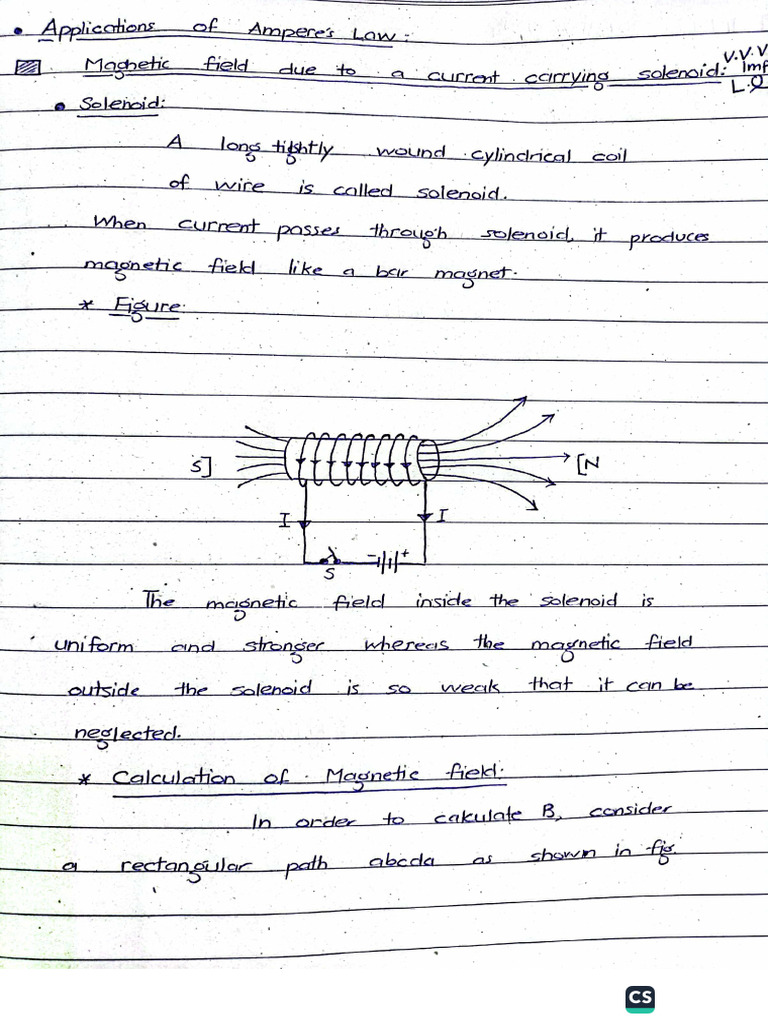 • Applications of Ampere's Law:
Magnetic field due to a current carrying solenoid: V.V.V Imp L.Q
• Solenoid:
A long tightly wound cylindrical coil
of wire is called solenoid.
When current passes through solenoid, it produces
magnetic field like a bar magnet.
* Figure:
S] [N
I I
- +
S
The magnetic field inside the solenoid is
uniform and stronger whereas the magnetic field
outside the solenoid is so weak that it can be
neglected.
* Calculation of Magnetic field:
In order to calculate B, consider
a rectangular path abcda as shown in fig.
CS